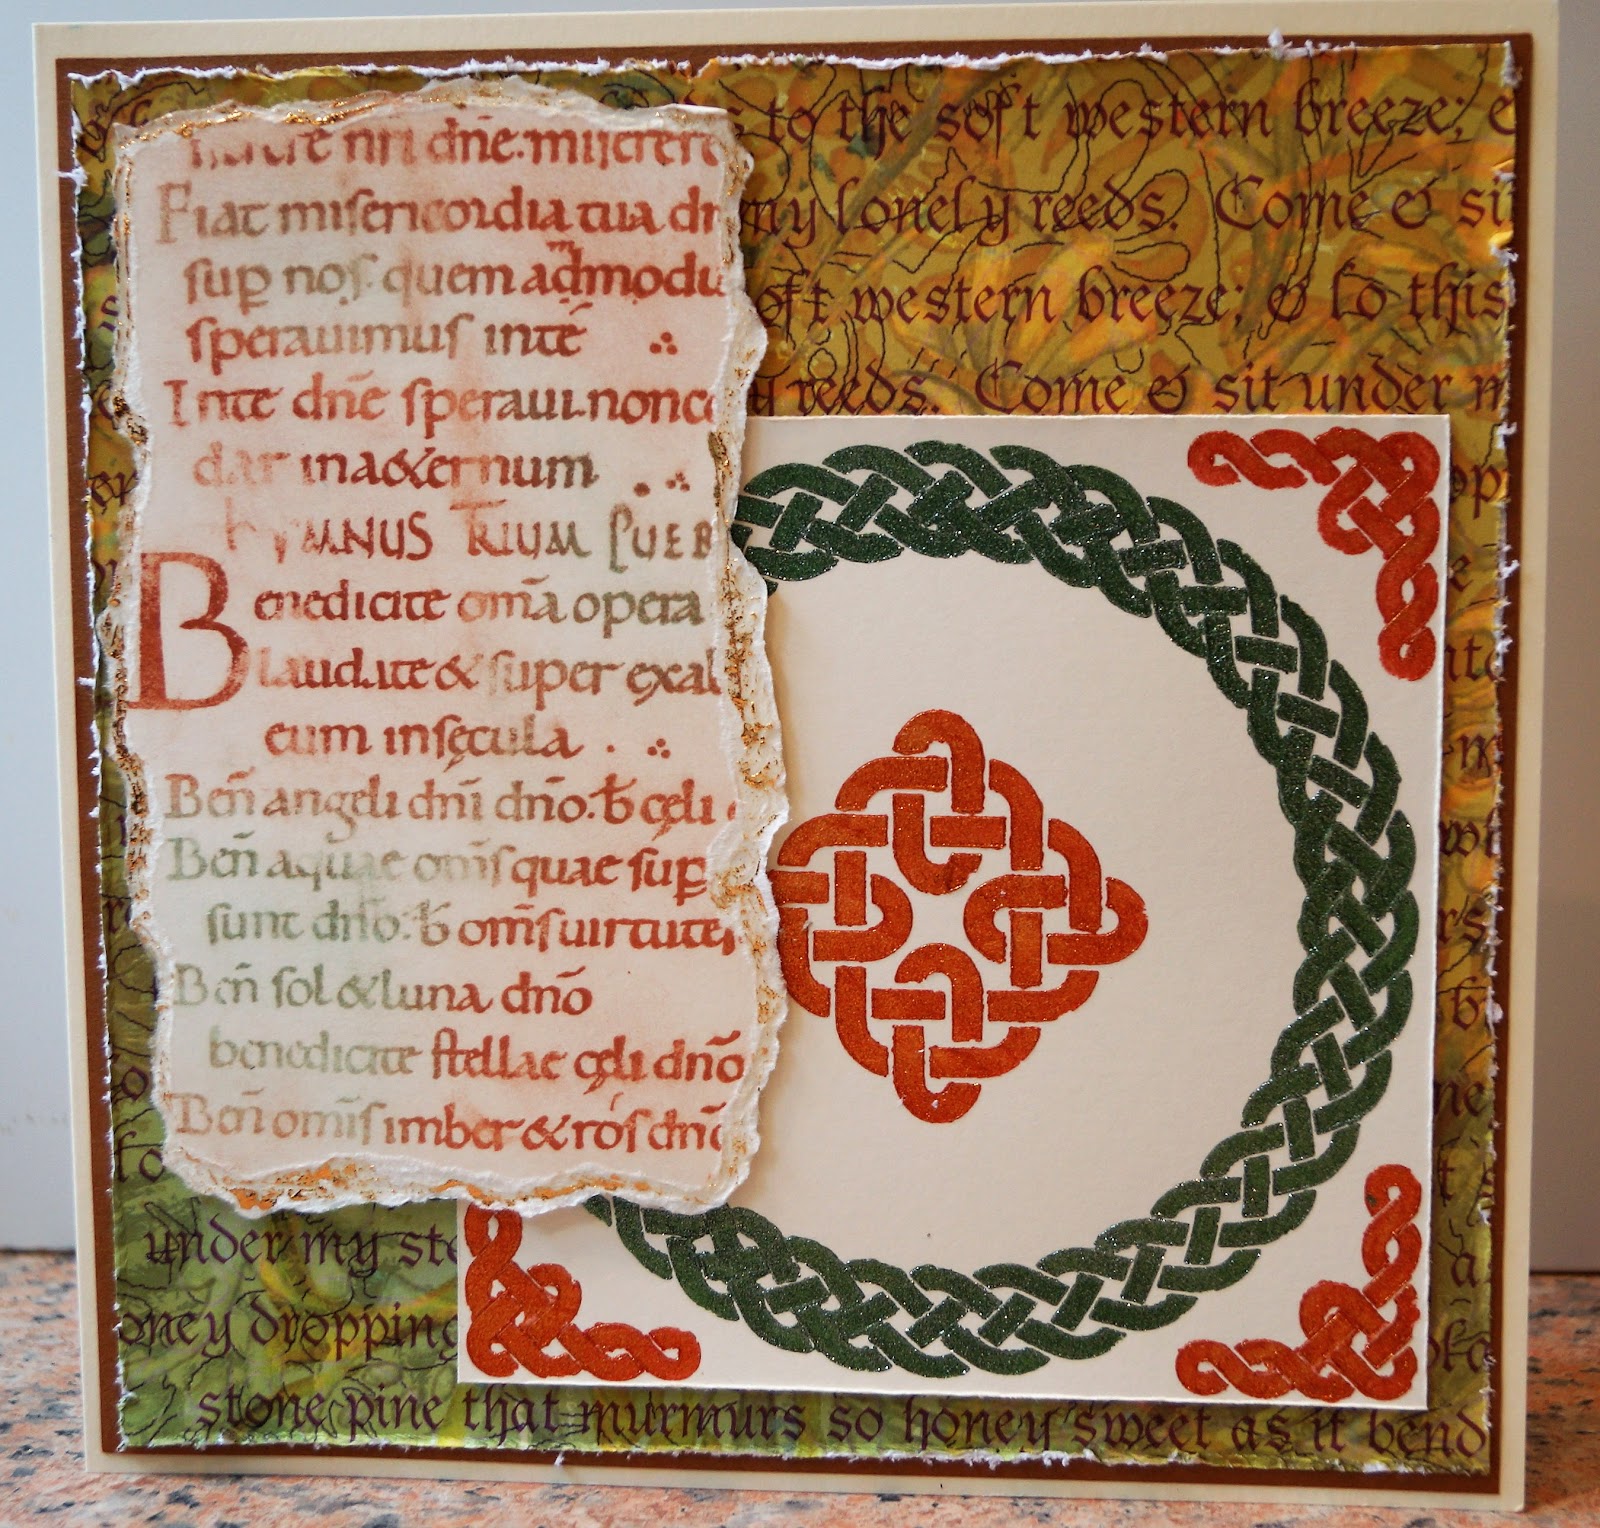 nostre nri dñe. miserere
Fiat misericordia tua dn
sup nos. quem admmodu
speravimus inte
Inte dñe speraui. nonco
dar ina&ernum
hYMNUS TRIUM PUER
Benedicite omã opera
laudate & super exal
eum insęcula
Beñ angeli dñi dño. b cęli
Beñ aquae omis quae sup
sunt dño. b omis uirtutes
Beñ sol & luna dño
benedicite stellae cęli dño
Beñ omis imber & ros dño
to the soft western breeze; &
my lonely reeds. Come & sit
soft western breeze; & lo this
reeds. Come & sit under m
under my sto
oney dropping
stone pine that murmurs so honey sweet as it bend